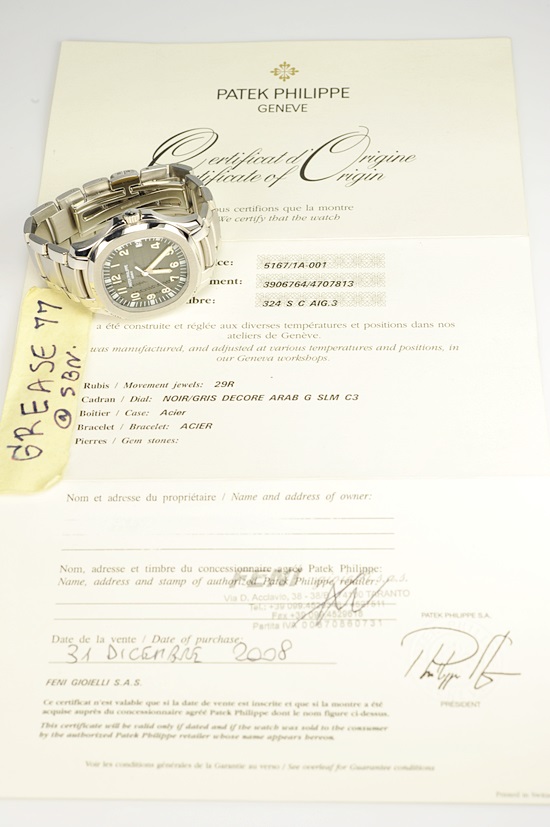 PATEK PHILIPPE
GENEVE
Certificat d'Origine
Certificate of Origin
ous certifions que la montre
We certify that the watch
ce: 5167/1A-001
ment: 3906764/4707813
bre: 324 S C AIG.3
a été construite et réglée aux diverses températures et positions dans nos
ateliers de Genève.
was manufactured, and adjusted at various temperatures and positions, in
our Geneva workshops.
GREASE 77
@ SBN.
Rubis / Movement jewels: 29R
Cadran / Dial: NOIR/GRIS DECORE ARAB G SLM C3
Boîtier / Case: Acier
Bracelet / Bracelet: ACIER
Pierres / Gem stones:
Nom et adresse du propriétaire / Name and address of owner:
Nom, adresse et timbre du concessionnaire agréé Patek Philippe:
Name, address and stamp of authorized Patek Philippe retailer:
FENI
Via D. Acclavio, 38 TARANTO
Partita IVA 00870860731
PATEK PHILIPPE S.A.
Date de la vente / Date of purchase:
31 DICEMBRE 2008
PRESIDENT
FENI GIOIELLI S.A.S.
Ce certificat n'est valable que si la date de vente est inscrite et que si la montre a été
acquise auprès du concessionnaire agréé Patek Philippe dont le nom figure ci-dessus.
This certificate will be valid only if dated and if the watch was sold to the consumer
by the authorized Patek Philippe retailer whose name appears hereon.
Voir les conditions générales de la Garantie au verso / See overleaf for Guarantee conditions
Printed in